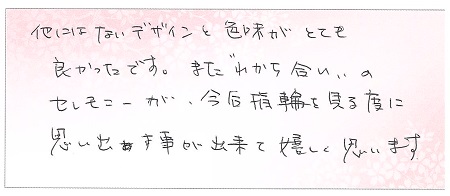 他にはないデザインと色味がとても
良かったです。またわかち合いの
セレモニーが、今后指輪を見る度に
思い出す事が出来て嬉しく思います